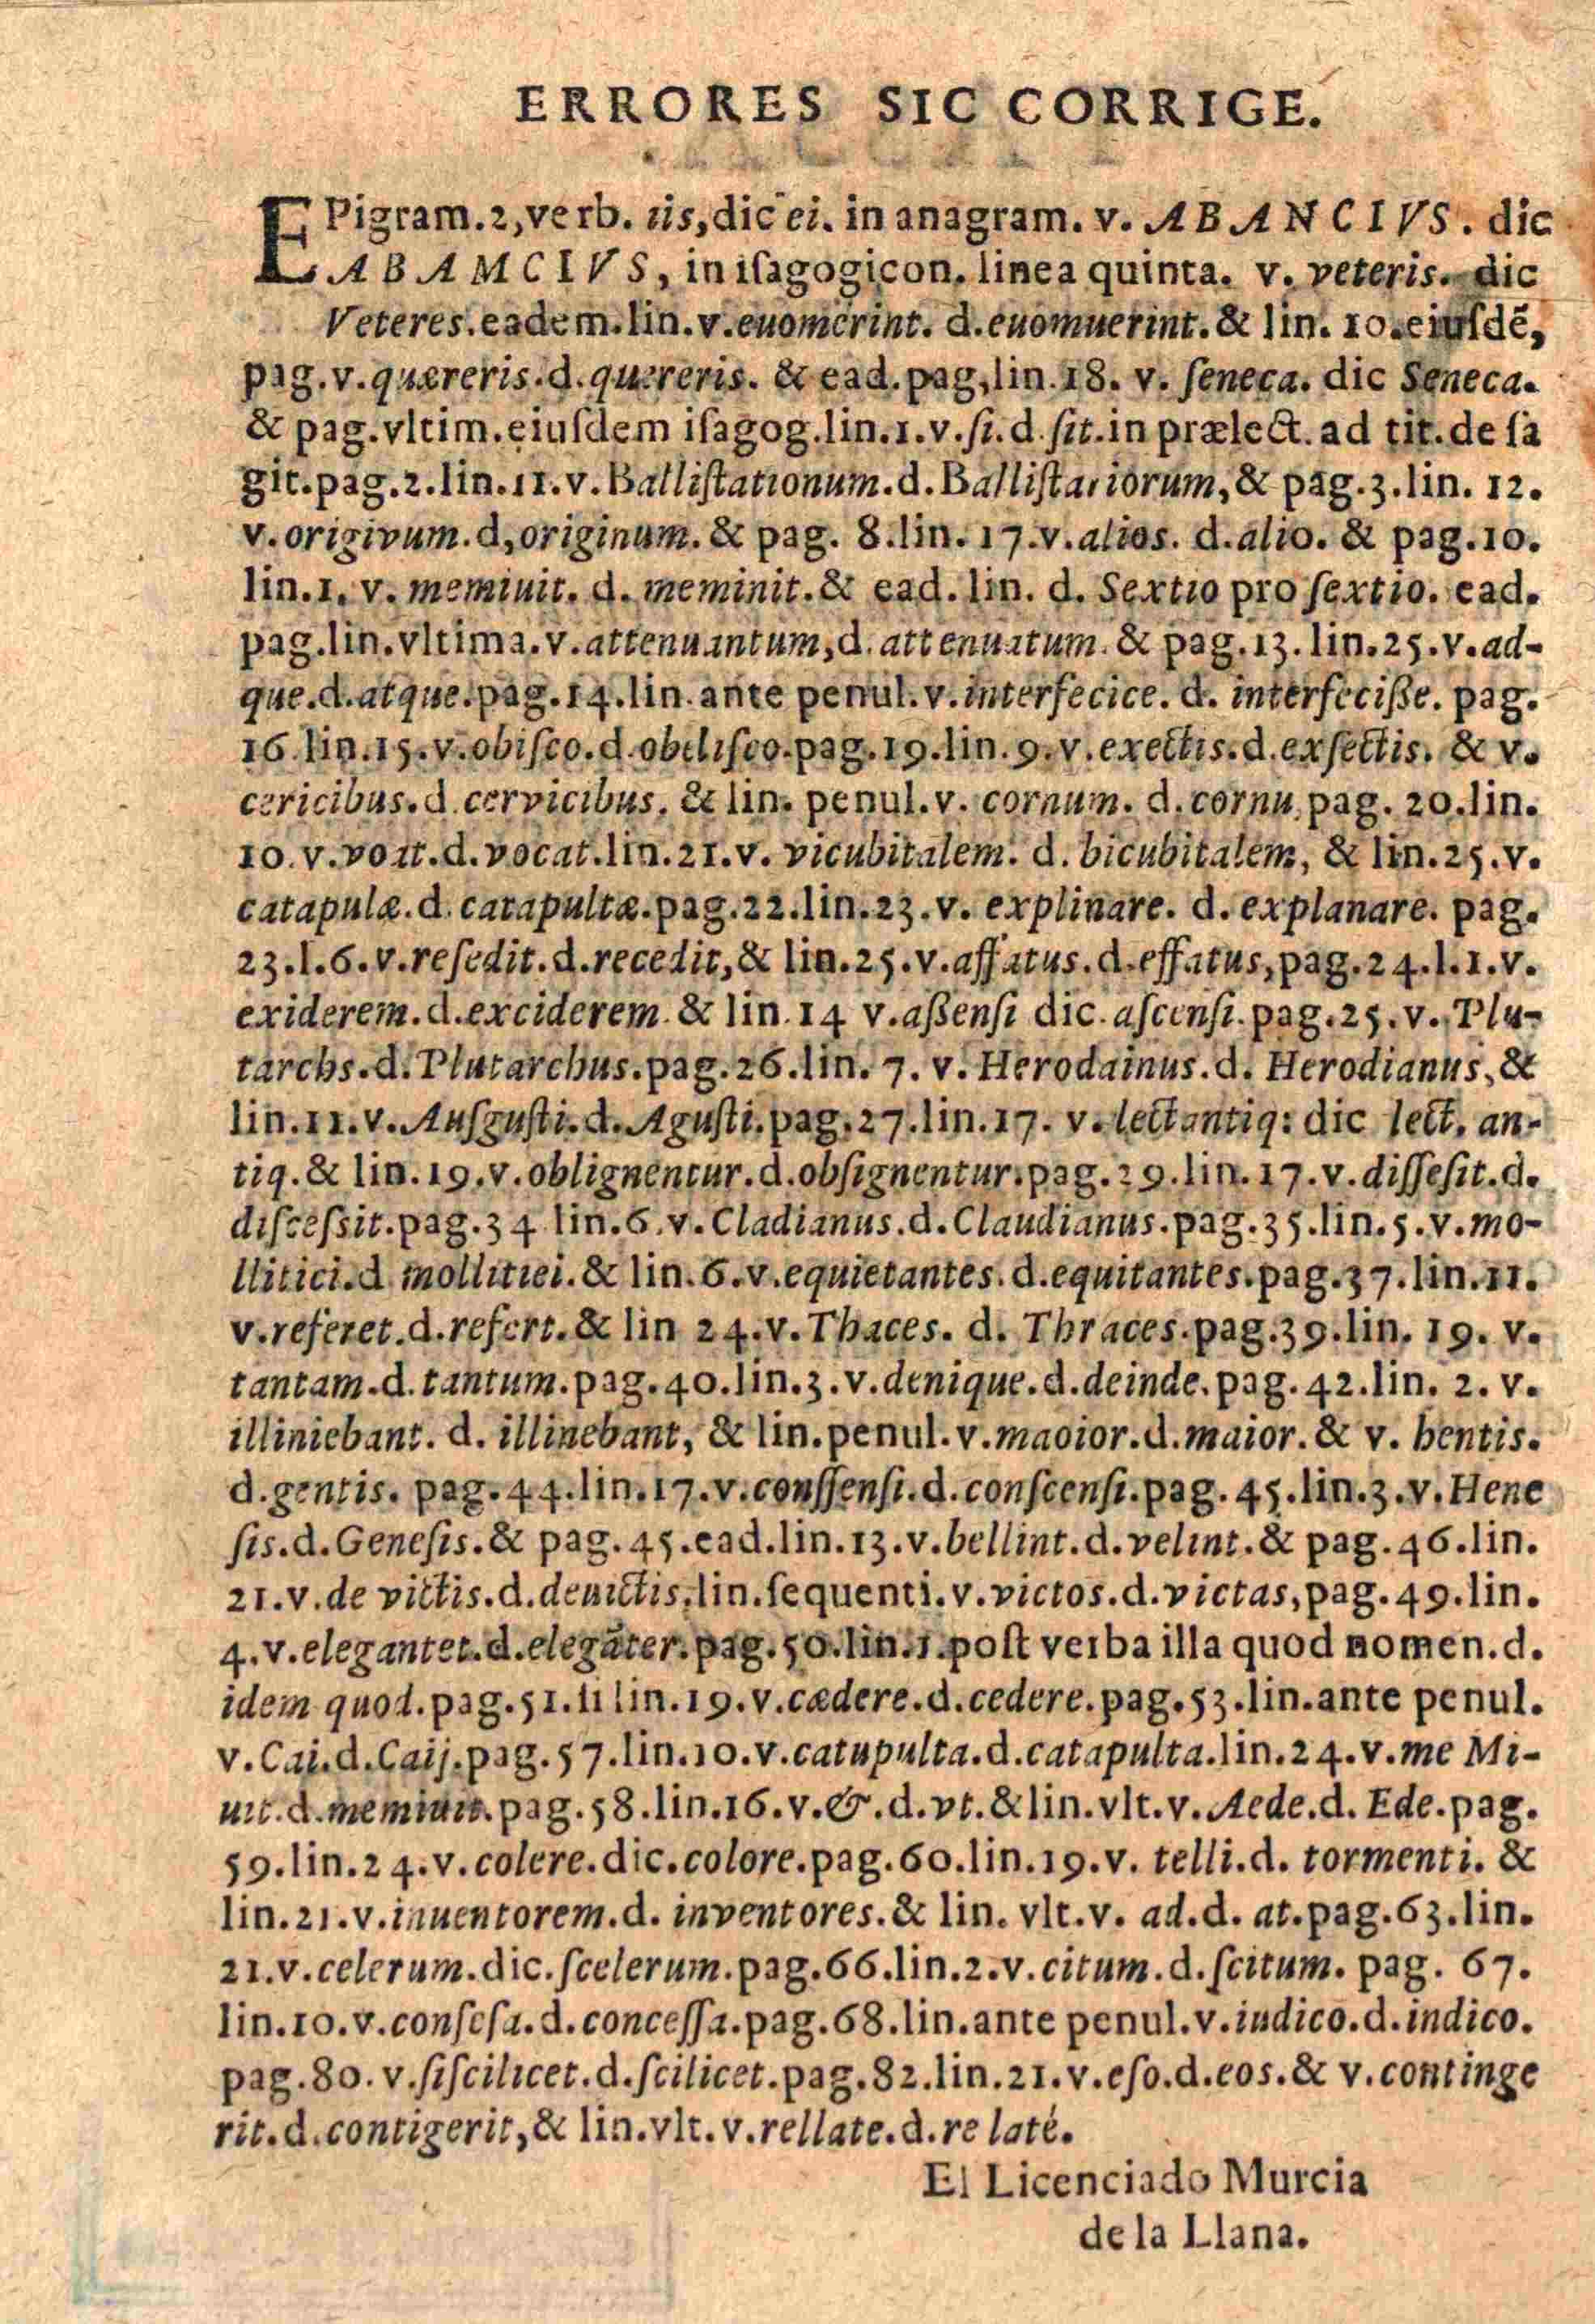 ERRORES SIC CORRIGE.
EPigram.2,verb. iis,dic ei. in anagram. v. ABANCIVS. dic
ABAMCIVS, in iſagogicon. linea quinta. v. veteris. dic
Veteres.eadem.lin.v.euomerint. d.euomuerint.& lin. 10.eiuſdē,
pag.v.quæreris.d.quereris. & ead.pag,lin.18. v. ſeneca. dic Seneca.
& pag.vltim.eiuſdem iſagog.lin.1.v.ſi.d.ſit.in prælect.ad tit.de ſa
git.pag.2.lin.11.v.Balliſtationum.d.Balliſtariorum,& pag.3.lin. 12.
v.origivum.d,originum.& pag. 8.lin.17.v.alios. d.alio. & pag.10.
lin.1. v. memiuit. d. meminit.& ead. lin. d. Sextio pro ſextio. ead.
pag.lin.vltima.v.attenuantum,d.attenuatum.& pag.13.lin.25.v.ad-
que.d.atque.pag.14.lin.ante penul.v.interfecice. d. interfeciße. pag.
16.lin.15.v.obiſco.d.obeliſco.pag.19.lin.9.v.exectis.d.exſectis. & v.
cericibus.d.cervicibus. & lin. penul.v. cornum. d.cornu.pag. 20.lin.
10.v.voat.d.vocat.lin.21.v. vicubitalem. d. bicubitalem, & lin.25.v.
catapulæ.d.catapultæ.pag.22.lin.23.v. explinare. d.explanare. pag.
23.l.6.v.reſedit.d.recedit,& lin.25.v.affatus.d.effatus,pag.24.l.1.v.
exiderem.d.exciderem.& lin.14 v.aßenſi dic.aſcenſi.pag.25.v. Plu-
tarchs.d.Plutarchus.pag.26.lin. 7. v. Herodainus.d. Herodianus,&
lin.11.v.Auſguſti.d.Aguſti.pag.27.lin.17. v.lectantiq: dic lect. an-
tiq.& lin.19.v.oblignentur.d.obſignentur.pag.29.lin.17.v.diſſeſit.d.
diſceſsit.pag.34 lin.6.v.Cladianus.d.Claudianus.pag.35.lin.5.v.mo-
llitici.d mollitiei.& lin.6.v.equietantes.d.equitantes.pag.37.lin.11.
v.referet.d.refert.& lin 24.v.Thaces. d. Thraces.pag.39.lin. 19. v.
tantam.d.tantum.pag.40.lin.3.v.denique.d.deinde.pag.42.lin. 2. v.
illiniebant. d. illinebant, & lin.penul.v.maoior.d.maior.& v. hentis.
d.gentis. pag.44.lin.17.v.conſſenſi.d.conſcenſi.pag.45.lin.3.v.Hene
ſis.d.Geneſis.& pag.45.ead.lin.13.v.bellint.d.velint.& pag.46.lin.
21.v.de victis.d.deuictis,lin.ſequenti.v.victos.d.victas,pag.49.lin.
4.v.elegantet.d.elegāter.pag.50.lin.1.poſt verba illa quod nomen.d.
idem quod.pag.51.li lin.19.v.cædere.d.cedere.pag.53.lin.ante penul.
v.Cai.d.Caij.pag.57.lin.10.v.catupulta.d.catapulta.lin.24.v.me Mi-
uit.d.memiuit.pag.58.lin.16.v.&.d.vt.&lin.vlt.v.Aede.d. Ede.pag.
59.lin.24.v.colere.dic.colore.pag.60.lin.19.v. telli.d. tormenti. &
lin.21.v.inuentorem.d. inventores.& lin. vlt.v. ad.d. at.pag.63.lin.
21.v.celerum.dic.ſcelerum.pag.66.lin.2.v.citum.d.ſcitum. pag. 67.
lin.10.v.conſeſa.d.conceſſa.pag.68.lin.ante penul.v.iudico.d.indico.
pag.80. v.ſiſcilicet.d.ſcilicet.pag.82.lin.21.v.eſo.d.eos.& v.continge
rit.d.contigerit,& lin.vlt.v.rellate.d.re laté.
El Licenciado Murcia
de la Llana.